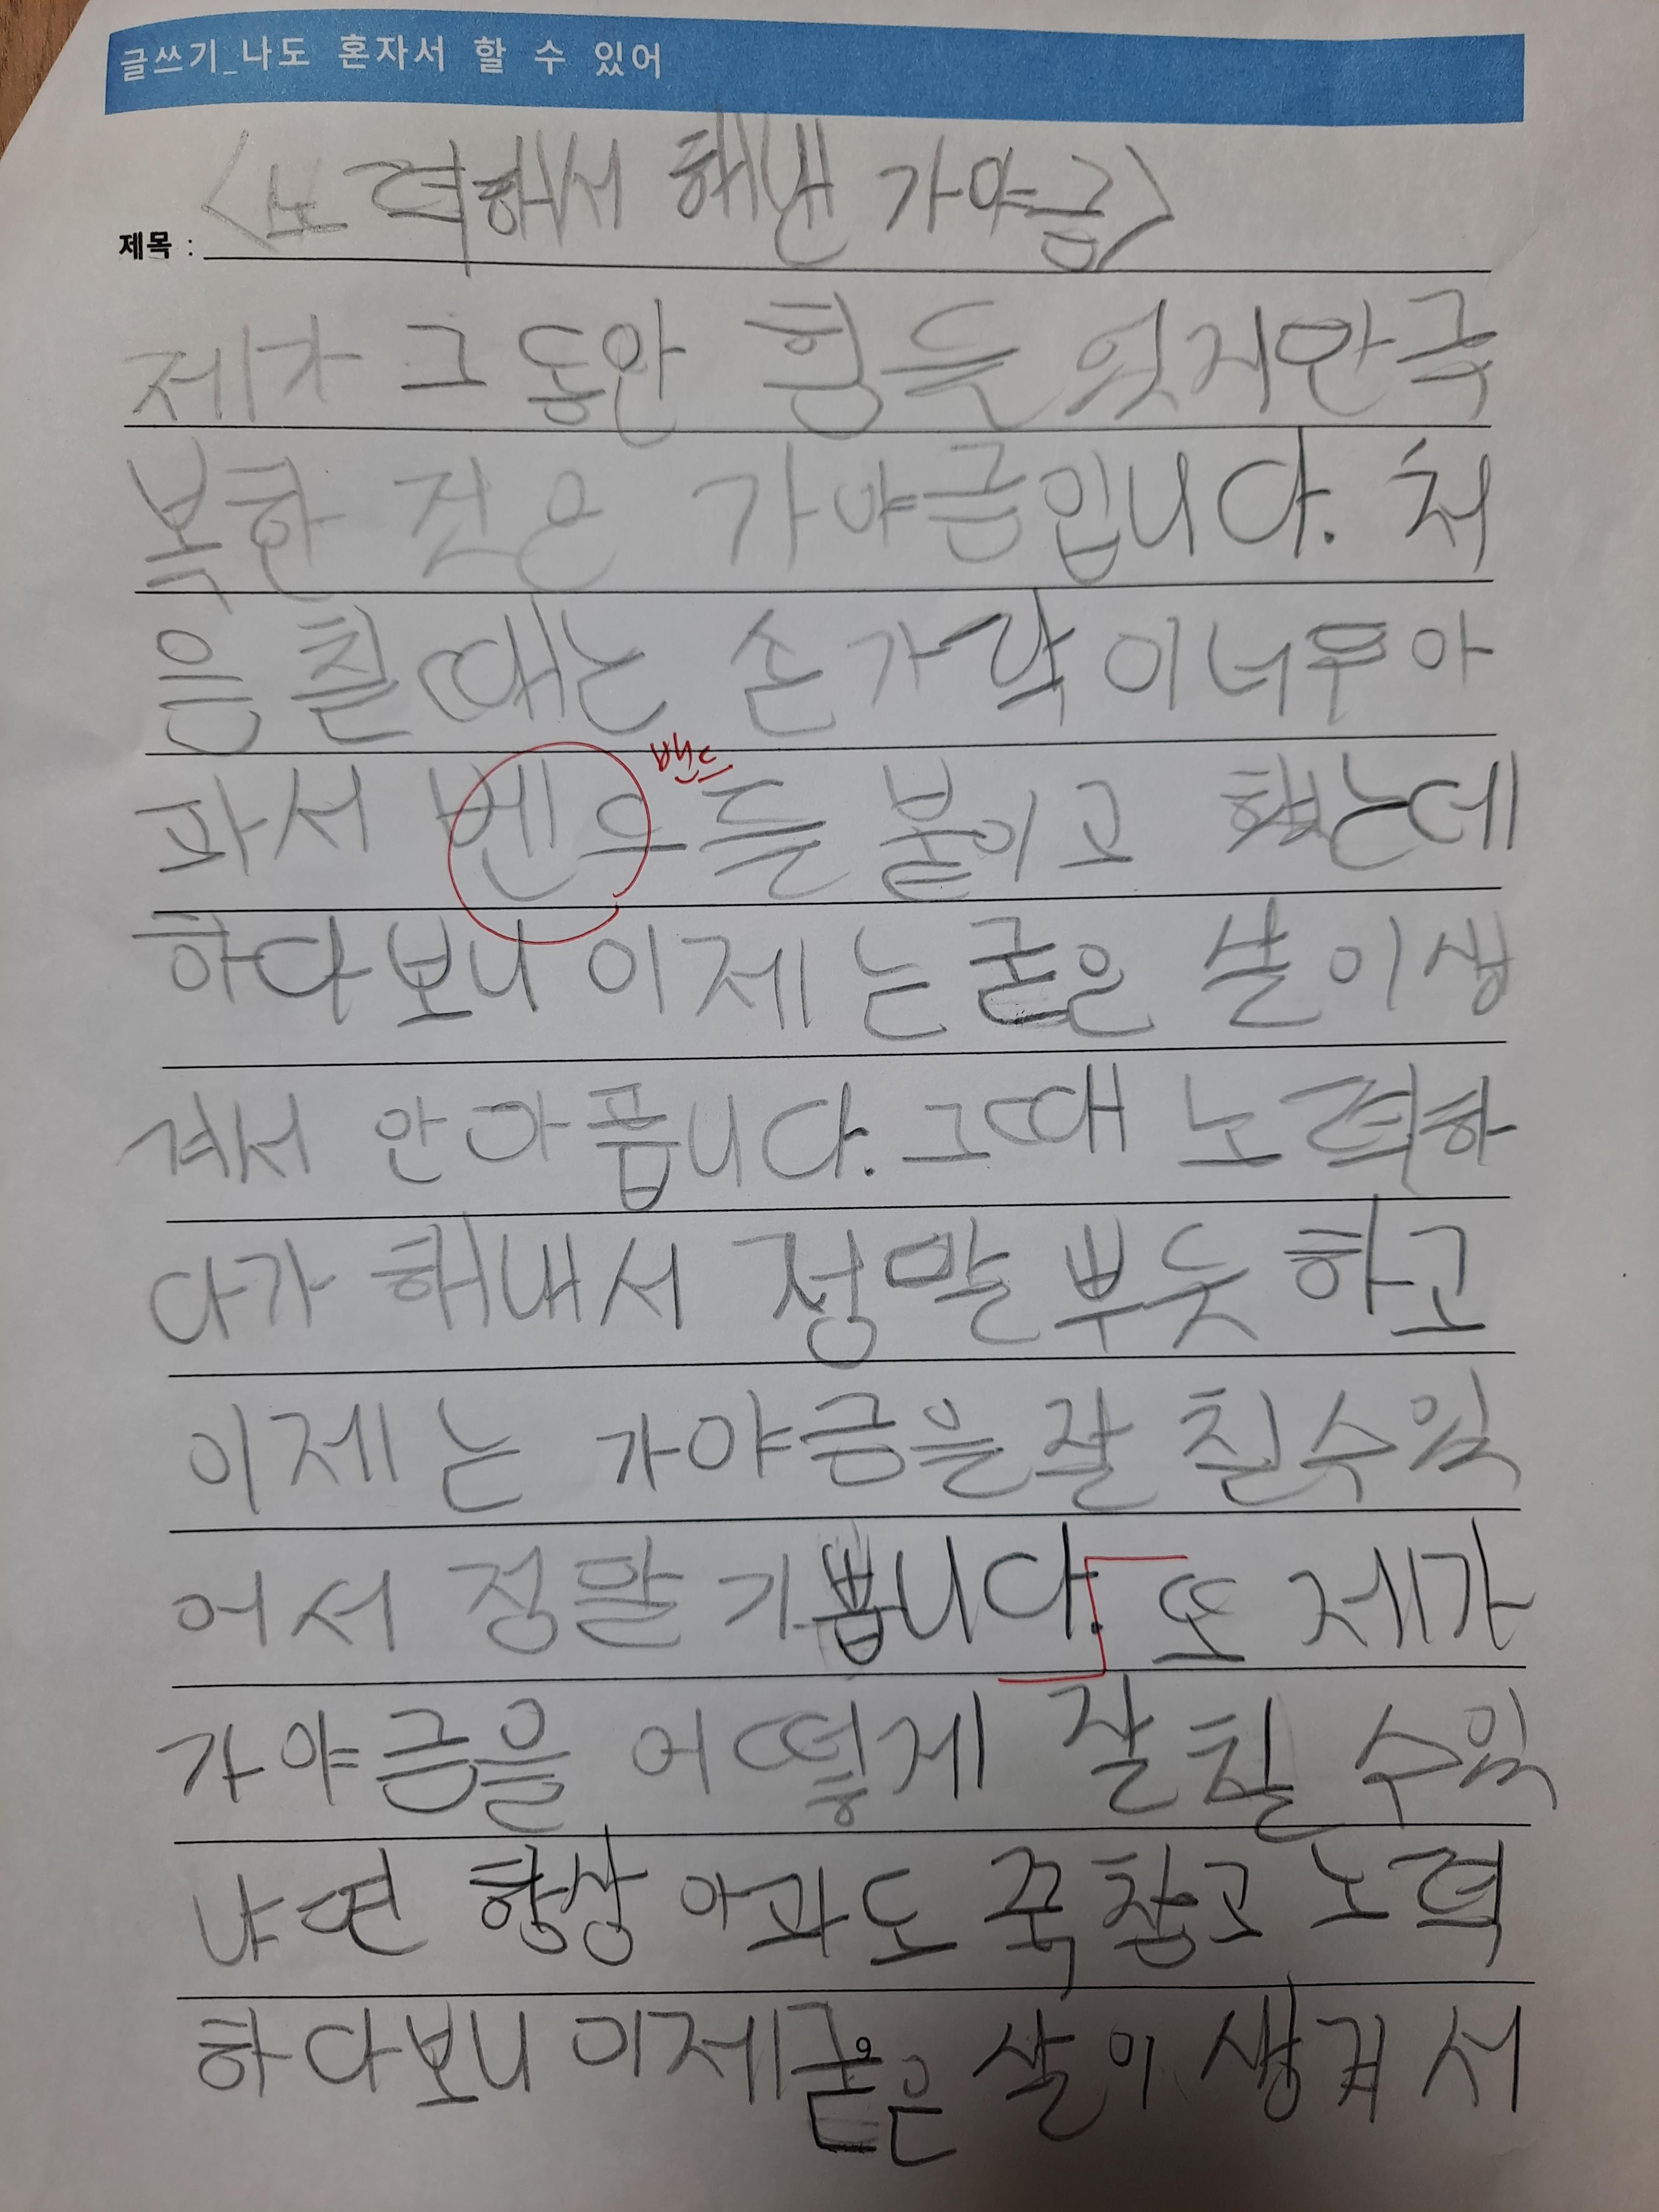 글쓰기_나도 혼자서 할 수 있어
제목 : <노력해서 해낸 가야금>
제가 그동안 힘들었지만 극
복한 것은 가야금입니다. 처
음 칠 때는 손가락이 너무 아
파서 밴드
벤으들 붙이고 했는데
하다보니 이제는 굳은 살이 생
겨서 안 아픕니다. 그때 노력하
다가 해내서 정말 뿌듯하고
이제는 가야금을 잘 칠수 있
어서 정말 기쁩니다. 또 제가
가야금을 어떻게 잘 칠 수 있
냐면 항상 아파도 꾹 참고 노력
하다보니 이제 굳은 살이 생겨서
9